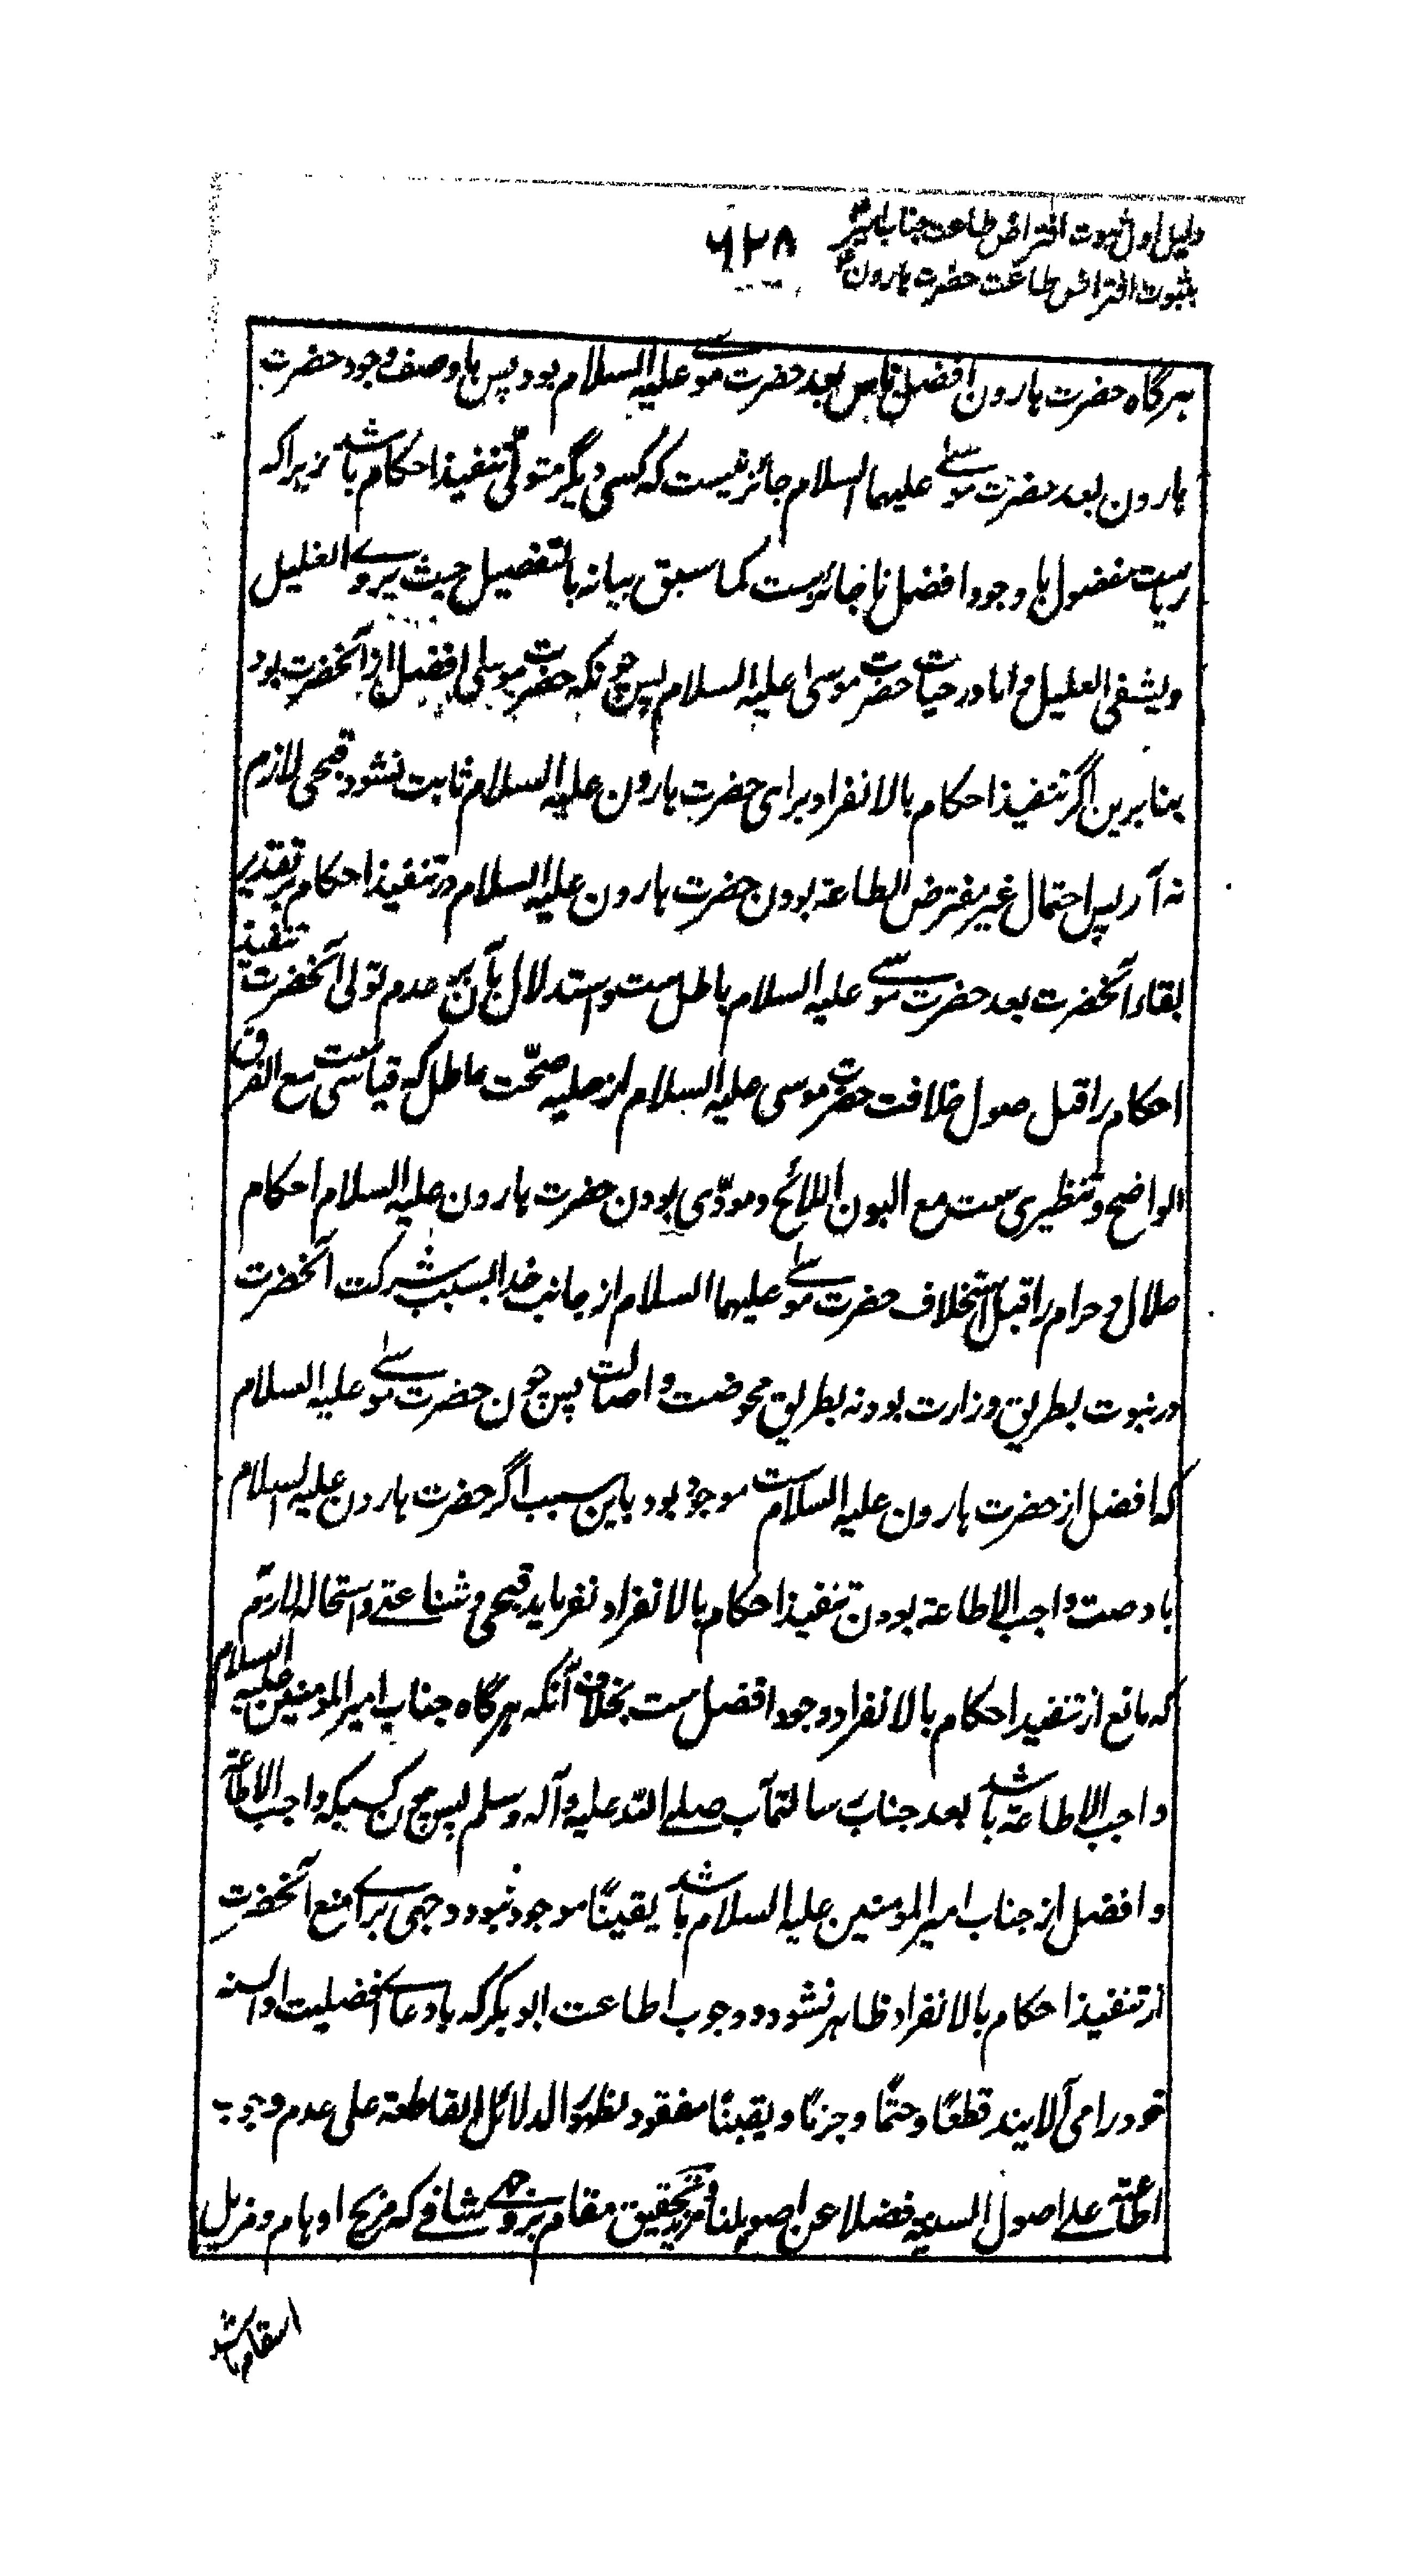 دلیل اول ثبوت افتراض طاعت جناب امیرؑ
بثبوت افتراض طاعت حضرت هارونؑ
۶۲۸
هرگاه حضرت هارون افضل ناس بعد حضرت موسے علیه السلام بود پس با وصف وجود حضرت
هارون بعد حضرت موسے علیهما السلام جائز نیست که کسی دیگر متولّی تنفیذ احکام باشد زیرا که
ریاست مفضول با وجود افضل ناجائزست کما سبق بیانه بالتفصیل حیث یروے الغلیل
ویشفی العلیل و اما در حیات حضرت موسی علیه السلام پس چونکه حضرت موسی افضل از آنحضرت بود
بنابرین اگر تنفیذ احکام بالانفراد برای حضرت هارون علیه السلام ثابت نشود قبحی لازم
نه آر پس احتمال غیر مفترض الطاعة بودن حضرت هارون علیه السلام در تنفیذ احکام بر تقدیر
بقاء آنحضرت بعد حضرت موسے علیه السلام باطل ست و استدلال بآن بر عدم تولی آنحضرت تنفیذ
احکام را قبل حصول خلافت حضرت موسی علیه السلام از حلیه صحّت عاطل که قیاسی ست مع الفرق
الواضح و تنظیری ست مع البون اللائح و مودّی بودن حضرت هارون علیه السلام احکام
حلال و حرام را قبل استخلاف حضرت موسے علیهما السلام از جانب خدا بسبب شرکت آنحضرت
در نبوت بطریق وزارت بود نه بطریق محوضت و اصالت پس چون حضرت موسے علیه السلام
که افضل از حضرت هارون علیه السلام ست موجود بود باین سبب اگر حضرت هارون علیه السلام
با وصف واجب الاطاعة بودن تنفیذ احکام بالانفراد نفرماید قبحی و شناعتے و استحاله لازم
که مانع از تنفیذ احکام بالانفراد وجود افضل ست بخلاف آنکه هرگاه جناب امیر المؤمنین علیه السلام
واجب الاطاعة باشد بعد جناب رسالتمآب صلے الله علیه و آله وسلم پس چون کسیکه واجب الاطاعة
و افضل از جناب امیر المؤمنین علیه السلام باشد یقینًا موجود نبود وجهی براے منع آنحضرت
از تنفیذ احکام بالانفراد ظاهر نشود و وجوب اطاعت ابوبکر که بادعاے افضلیت او السنه
خود را می آلایند قطعًا و حتمًا و جزمًا و یقینًا مفقود لظهور الدلائل القاطعة علی عدم وجوب
اطاعته علے اصول السنیه فضلا عن اصولنا و مزید تحقیق مقام بروجهے شافے که مزیح اوهام و مزیل
اسقام باشد